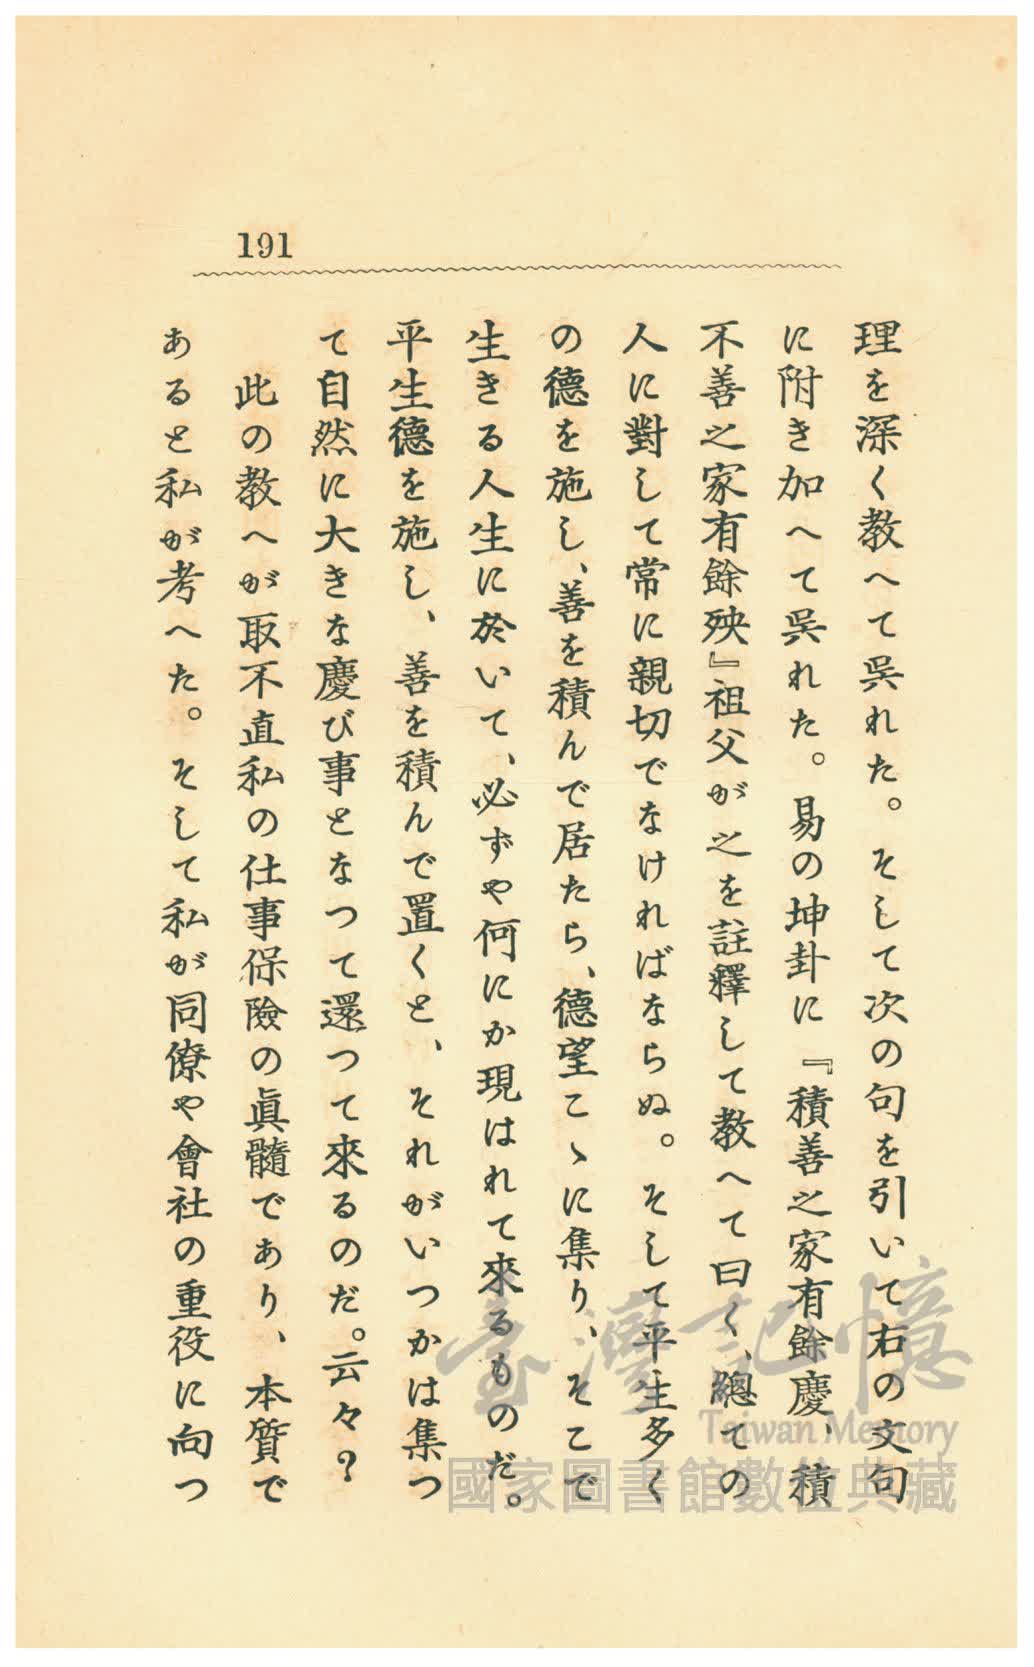 191
理を深く教へて呉れた。そして次の句を引いて右の文句
に附き加へて呉れた。易の坤卦に『積善之家有餘慶、積
不善之家有餘殃』祖父が之を註釋して教へて曰く、總ての
人に對して常に親切でなければならぬ。そして平生多く
の德を施し、善を積んで居たら、德望こゝに集り、そこで
生きる人生に於いて、必ずや何にか現はれて來るものだ。
平生德を施し、善を積んで置くと、それがいつかは集つ
て自然に大きな慶び事となつて還つて來るのだ。云々?
此の教へが取不直私の仕事保險の眞髓であり、本質で
あると私が考へた。そして私が同僚や會社の重役に向つ
臺灣記憶
Taiwan Memory
國家圖書館數位典藏